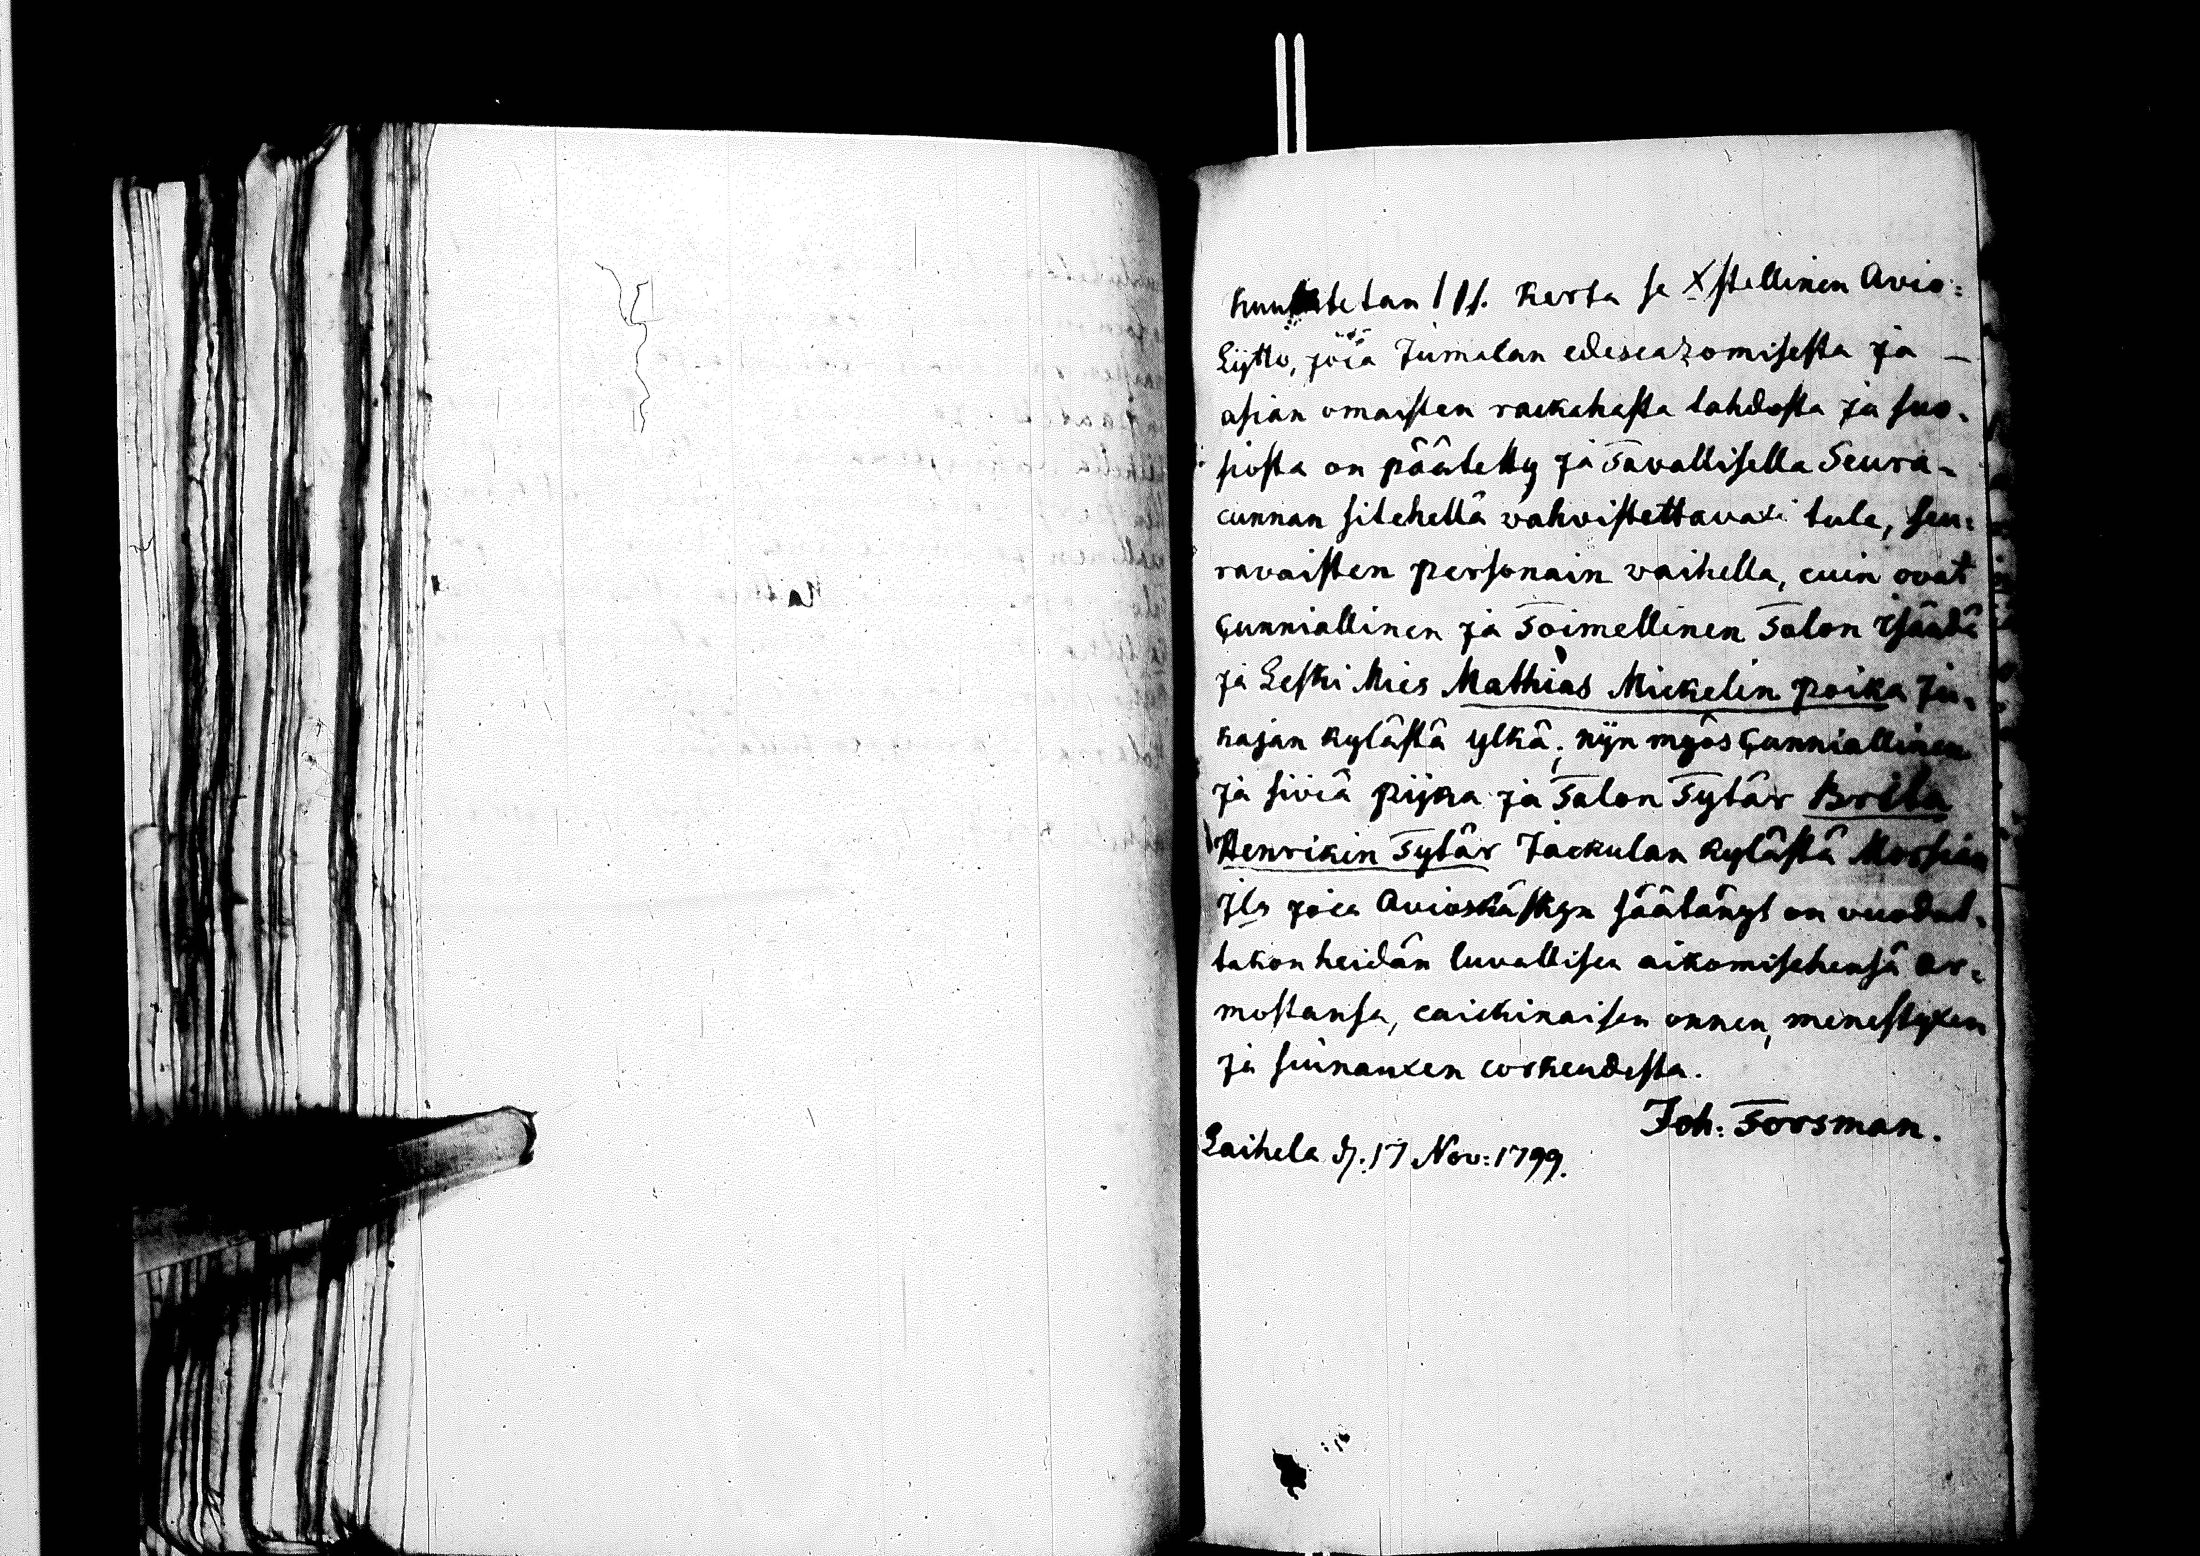 Kuulutetan 1 ss. Kerta se Xstellinen Avio-
Lijtto, joca Jumalan edescazomisesta ja —
asian omaisten rackahasta tahdosta ja suo-
siosta on päätetty ja Tavallisella Seura-
cunnan sitehellä vahvistettavaxi tule, seu-
ravaisten personain vaihella, cuin ovat
Cunniallinen ja Toimellinen Talon Isändä
ja Leski Mies Mathias Mickelin poika Ju-
kajan kylästä ylkä; nijn myös Cunniallinen
ja siviä pijka ja Talon Tytär Brita
Henrikin Tytär Jackulan kylästä Morsian
Jls joca Avioskäskyn säätänyt on vuodat-
takon heidän luvallisen aikomisehensä Ar-
mostansa, caickinaisen onnen, menestyxen
ja siunauxen corkeudesta.
Joh: Forsman.
Laihela d. 17 Nov: 1799.